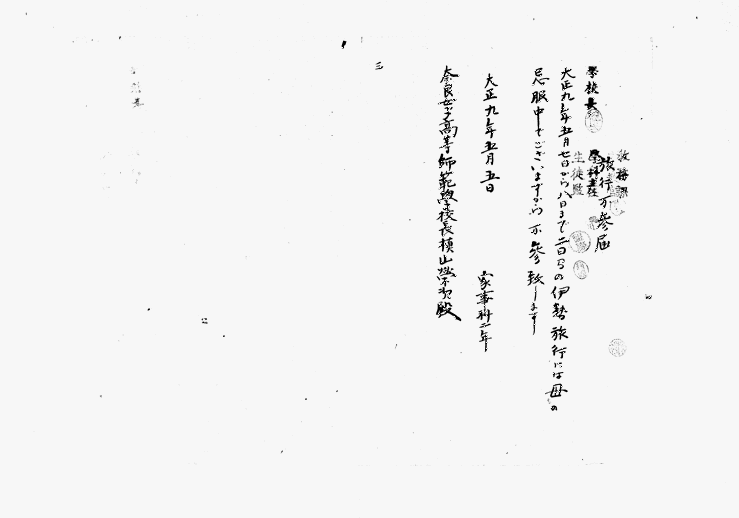 教務課
旅行不參届
學校長
學科主任
生徒監
大正九年五月七日から八日まで二日間の伊勢旅行には母の
忌服中でございますから不參致します
大正九年五月五日
家事科二年
奈良女子高等師範學校長槇山榮次殿
三